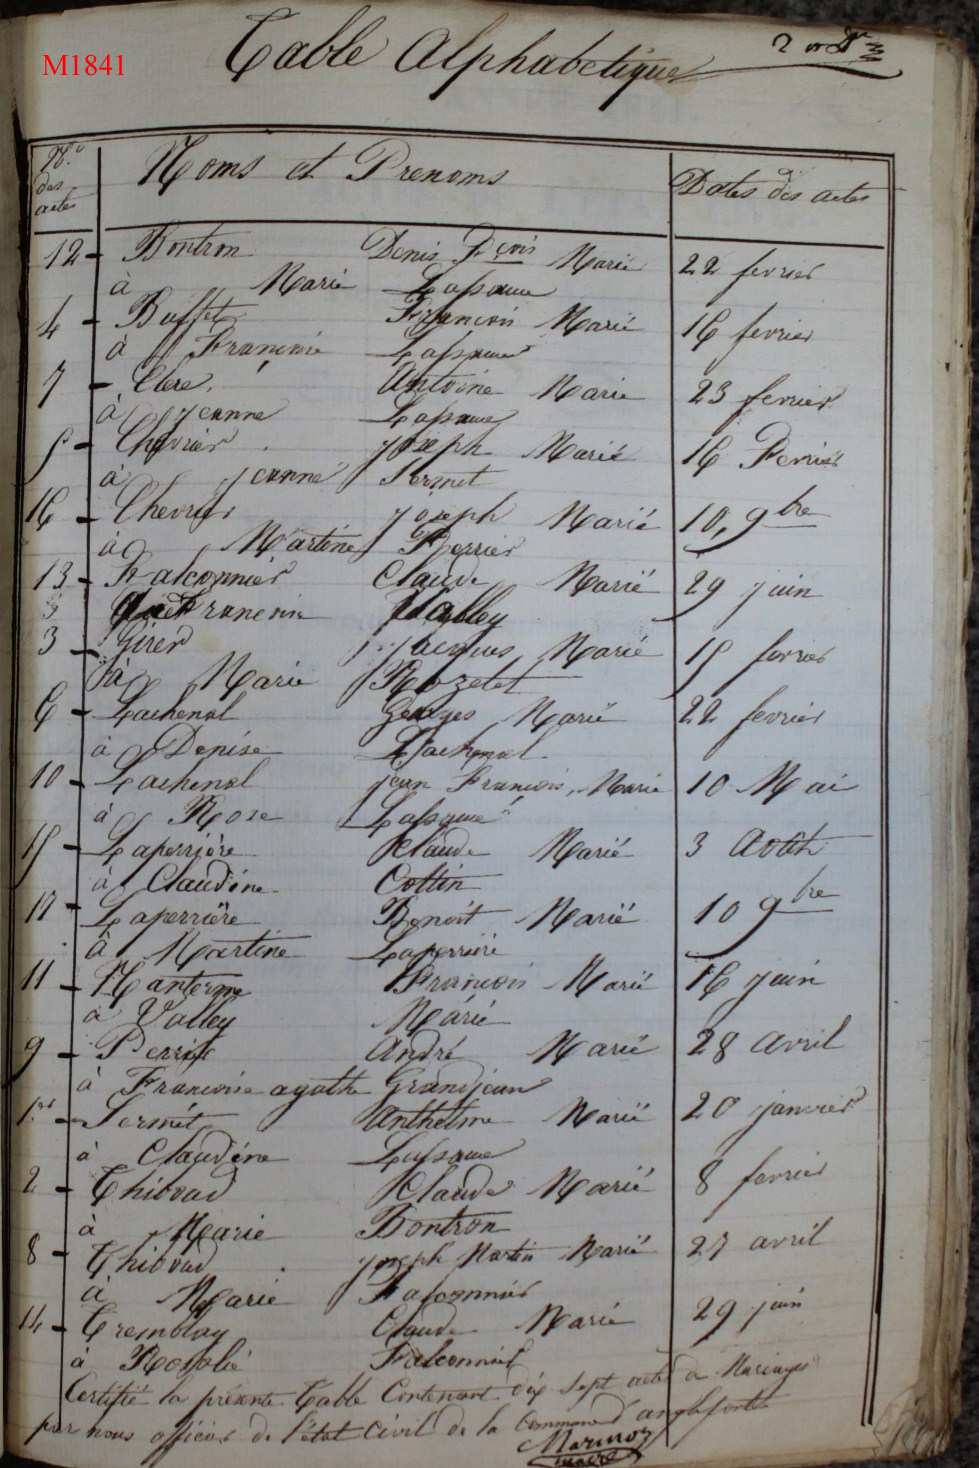 M1841
Table Alphabetique
No des actes
Noms et Prenoms
Dates des actes
12 - Bontron Denis Fçois Marié 22 fevrier
à Marie Lassaue
4 - Buffet François Marié 16 fevrier
à Francoise Lassaue
7 - Clerc Antoine Marié 23 fevrier
à Jeanne Lassaue
5 - Chevrier Joseph Marié 16 Fevrier
à Jeanne Sermet
16 - Chevrier Joseph Marié 10, 9bre
à Martine Perrier
13 - Falconnier Claude Marié 29 juin
à Francoise Valley
3 - Girer Jacques Marié 15 fevrier
à Marie Rozetet
6 - Lachenal Georges Marié 22 fevrier
à Denise Lachenal
10 - Lachenal jean François, Marié 10 Mai
à Rose Lassaue
15 - Laperrière Claude Marié 3 Août
à Claudine Cottin
17 - Laperrière Benoit Marié 10 9bre
à Martine Laperrière
11 - François Marié 16 juin
à Valley Marie
9 - André Marié 28 avril
à Francoise agathe Grandjean
1er - Sermét Anthelme Marié 20 janvier
à Claudine Lassaue
2 - Thiovad Claude Marié 8 fevrier
à Marie Bontron
8 - Thiovad joseph Martin Marié 27 avril
à Marie Falconnier
14 - Tremblay Claude Marié 29 juin
à Rosalie Falconnier
Certifié la présente Table Contenant dix sept actes de Mariages
par nous officier de l'état Civil de la Commune d'anglefort
maire